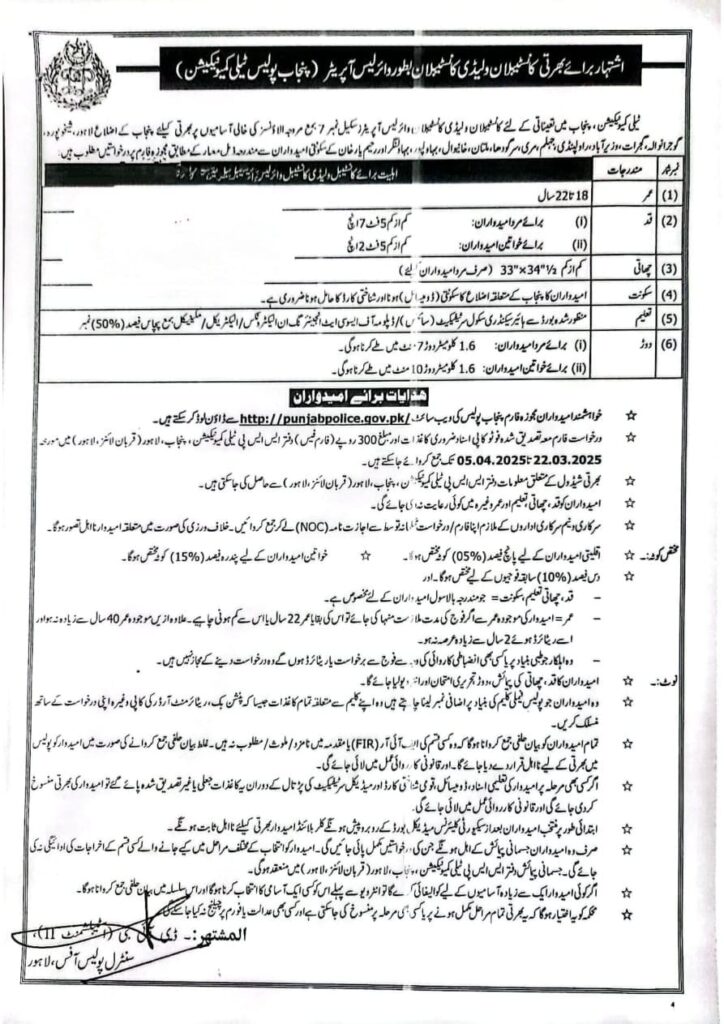 اشتہار برائے بھرتی کانسٹیبلان ولیڈی کانسٹیبلان بطور وائرلیس آپریٹر (پنجاب پولیس ٹیلی کمیونیکیشن)
ٹیلی کمیونیکیشن، پنجاب میں تعیناتی کے لئے کانسٹیبلان ولیڈی کانسٹیبلان وائرلیس آپریٹرز سکیل نمبر 7 بمع مروجہ الاؤنسز کی خالی آسامیوں پر بھرتی کیلئے پنجاب کے اضلاع لاہور، شیخوپورہ،
گوجرانوالہ، گجرات، وزیر آباد، راولپنڈی، جہلم، مری، سرگودھا، ملتان، خانیوال، بہاولپور، بہاولنگر اور رحیم یار خان کے سکونتی امیدواران سے مندرجہ ذیل معیار کے مطابق مجوزہ فارم پر درخواستیں مطلوب ہیں۔
نمبر شمار مندرجات اہلیت برائے کانسٹیبل ولیڈی کانسٹیبل وائرلیس
(1) عمر 18 تا 22 سال
(2) قد (i) برائے مرد امیدواران: کم از کم 5 فٹ 7 انچ
(ii) برائے خواتین امیدواران: کم از کم 5 فٹ 2 انچ
(3) چھاتی کم از کم 33"×34"½ (صرف مرد امیدواران کیلئے)
(4) سکونت امیدواران کا پنجاب کے متعلقہ اضلاع کا سکونتی (ڈومیسائل) ہونا اور شناختی کارڈ کا حامل ہونا ضروری ہے۔
(5) تعلیم منظور شدہ بورڈ سے ہائیر سیکنڈری سکول سرٹیفکیٹ (سائنس)/ڈپلومہ آف ایسوسی ایٹ انجینئرنگ ان الیکٹرونکس/الیکٹریکل/مکینیکل بمع پچاس فیصد (50%) نمبر
(6) دوڑ (i) برائے مرد امیدواران: 1.6 کلومیٹر دوڑ 7 منٹ میں طے کرنا ہوگی۔
(ii) برائے خواتین امیدواران: 1.6 کلومیٹر دوڑ 10 منٹ میں طے کرنا ہوگی۔
ہدایات برائے امیدواران
☆ خواہشمند امیدواران مجوزہ فارم پنجاب پولیس کی ویب سائٹ http://punjabpolice.gov.pk/ سے ڈاؤن لوڈ کر سکتے ہیں۔
☆ درخواست فارم معہ تصدیق شدہ فوٹو کاپی اسناد و ضروری کاغذات اور مبلغ 300 روپے (فارم فیس) دفتر ایس ایس پی ٹیلی کمیونیکیشن، پنجاب، لاہور (قربان لائنز، لاہور) میں مورخہ
22.03.2025 تا 05.04.2025 تک جمع کروائے جاسکتے ہیں۔
☆ بھرتی شیڈول کے متعلق معلومات دفتر ایس ایس پی ٹیلی کمیونیکیشن، پنجاب، لاہور (قربان لائنز، لاہور) سے حاصل کی جاسکتی ہیں۔
☆ امیدواران کو قد، چھاتی، تعلیم اور عمر وغیرہ میں کوئی رعایت نہ دی جائے گی۔
☆ سرکاری و نیم سرکاری اداروں کے ملازم اپنا فارم/درخواست محکمانہ توسط سے اجازت نامہ (NOC) لے کر جمع کروائیں۔ خلاف ورزی کی صورت میں متعلقہ امیدوار نااہل تصور ہوگا۔
مختص کوٹہ:۔ ☆ اقلیتی امیدواران کے لیے پانچ فیصد (05%) کوٹہ مختص ہوگا۔ ☆ خواتین امیدواران کے لیے پندرہ فیصد (15%) کوٹہ مختص ہوگا۔
☆ دس فیصد (10%) سابقہ فوجیوں کے لیے مختص ہوگا۔ اور
– قد، چھاتی، تعلیم، سکونت = جو مندرجہ بالا سول امیدواران کے لئے مخصوص ہے۔
– عمر = امیدوار کی موجودہ عمر سے اگر فوج کی مدت ملازمت منہا کی جائے تو اس کی بقایا عمر 22 سال یا اس سے کم ہونی چاہیے۔ علاوہ ازیں موجودہ عمر 40 سال سے زیادہ نہ ہو اور
اسے ریٹائرڈ ہوئے 2 سال سے زیادہ عرصہ نہ ہو۔
– وہ اہلکار جو طبی بنیاد پر یا کسی بھی انضباطی کارروائی کی وجہ سے فوج سے برخواست یا ریٹائرڈ ہوں گے وہ درخواست دینے کے مجاز نہیں ہیں۔
نوٹ:۔ ☆ امیدواران کا قد، چھاتی کی پیمائش، دوڑ، تحریری امتحان اور انٹرویو لیا جائے گا۔
☆ وہ امیدواران جو پولیس فیملی کلیم کی بنیاد پر اضافی نمبر لینا چاہتے ہیں وہ اپنے کلیم سے متعلقہ تمام کاغذات جیسا کہ پنشن بک، ریٹائرمنٹ آرڈر کی کاپی وغیرہ اپنی درخواست کے ساتھ
منسلک کریں۔
☆ تمام امیدواران کو بیان حلفی جمع کروانا ہوگا کہ وہ کسی قسم کی ایف آئی آر (FIR) یا مقدمہ میں نامزد/ملوث/مطلوب نہ ہیں۔ غلط بیان حلفی جمع کروانے کی صورت میں امیدوار کو پولیس
میں بھرتی کے لیے نااہل قرار دے دیا جائے گا۔ اور قانونی کارروائی عمل میں لائی جائے گی۔
☆ اگر کسی بھی مرحلہ پر امیدوار کی تعلیمی اسناد، ڈومیسائل، قومی شناختی کارڈ اور میڈیکل سرٹیفکیٹ کی پڑتال کے دوران یہ کاغذات جعلی یا غیر تصدیق شدہ پائے گئے تو امیدوار کی بھرتی منسوخ
کردی جائے گی اور قانونی کارروائی عمل میں لائی جائے گی۔
☆ ابتدائی طور پر منتخب امیدواران بعد از سیکیورٹی کلیئرنس میڈیکل بورڈ کے روبرو پیش ہونگے کلر بلائنڈ امیدوار بھرتی کیلئے نااہل ثابت ہونگے۔
☆ صرف وہ امیدواران جسمانی پیمائش کے اہل ہونگے جن کی درخواستیں مکمل پائی جائیں گی۔ امیدوار کو انتخاب کے مختلف مراحل میں کیے جانے والے کسی قسم کے اخراجات کی ادائیگی نہ کی
جائے گی۔ جسمانی پیمائش دفتر ایس ایس پی ٹیلی کمیونیکیشن، پنجاب، لاہور (قربان لائنز، لاہور) میں منعقد ہوگی۔
☆ اگر کوئی امیدوار ایک سے زیادہ آسامیوں کے لیے کوالیفائی کرے گا تو انٹرویو سے پہلے اس کو کسی ایک آسامی کا انتخاب کرنا ہوگا اور اس سلسلہ میں بیان حلفی جمع کروانا ہوگا۔
☆ محکمہ کو یہ اختیار ہوگا کہ یہ بھرتی تمام مراحل مکمل ہونے پر یا کسی بھی مرحلہ پر منسوخ کی جاسکتی ہے اور کسی بھی عدالت یا فورم پر چیلنج نہ کیا جاسکے گا۔
المشتہر:۔ ڈی آئی جی (اسٹیبلشمنٹ II)،
سنٹرل پولیس آفس، لاہور
4